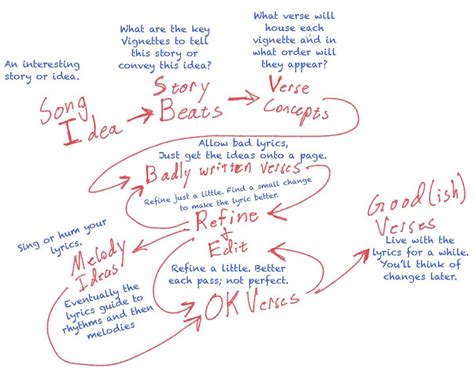 What are the key
Vignettes to tell
this story or
convey this idea?
What verse will
house each
vignette and in
what order will
they appear?
An interesting
story or idea.
Song
Idea
Story
Beats
Verse
Concepts
Allow bad lyrics,
Just get the ideas onto a page.
Badly written verses
Refine just a little. Find a small change
to make the lyric better.
Refine
+
Edit
Good(ish)
Verses
Live with the
lyrics for a while.
You'll think of
changes later.
Sing or hum your
lyrics.
Melody
Ideas
Eventually the
lyrics guide to
rhythms and then
melodies
Refine a little. Better
each pass; not perfect.
OK Verses